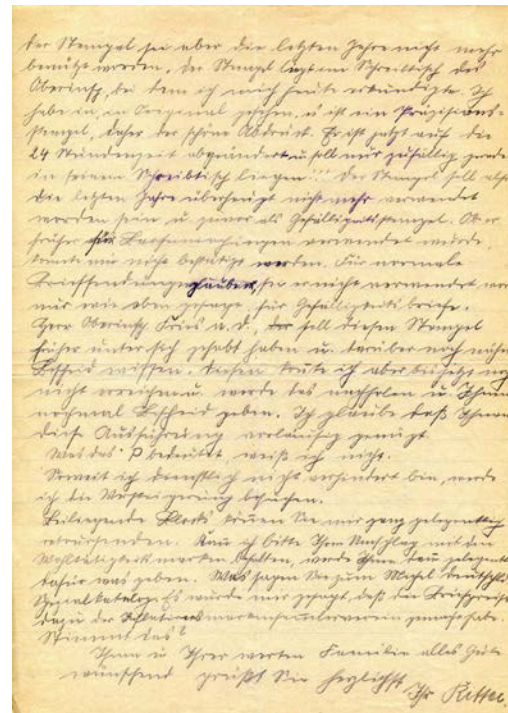 der Stempel sei aber die letzten Jahre nicht mehr
benützt worden. Der Stempel liegt im Schreibtisch des
Oberinsp., bei dem ich mich heute erkundigte. Ich
habe ihn, im Original gesehen, u. ist ein Präzisions-
stempel, daher der schöne Abdruck. Er ist jetzt auf die
24 Stundenzeit abgeändert u. soll nur zufällig gerade
in seinem Schreibtisch liegen!!! Der Stempel soll also
die letzten Jahre überhaupt nicht mehr verwendet
worden sein u. zwar als Gefälligkeitsstempel. Ob er
früher für verwendet wurde
konnte mir nicht bestätigt werden. Für normale
Briefsendungen glauben, sei er nicht verwendet worden
nur wie oben gesagt, für Gefälligkeitsbriefe.
Herr Oberinsp. a. D., soll diesen Stempel
früher unter sich gehabt haben u. darüber noch näher
Bescheid wissen. Diesen konnte ich aber bis jetzt noch
nicht erreichen u. werde das nachholen u. Ihnen
nochmal Bescheid geben. Ich glaube daß Ihnen
diese Ausführung vorläufig genügt.
Was das P bedeutet, weiß ich nicht.
Soweit ich dienstlich nicht verhindert bin, werde
ich die Versteigerung besuchen.
Beiliegende Blocks können Sie mir ganz gelegentlich
retoursenden. Kann ich bitte Ihren Umschlag mit den
Wohltätigkeitsmarken behalten, werde Ihnen dann gelegentl.
dafür was geben. Was sagen Sie zum Michel Deutschl.
Spezialkatalog. Es wurde mir gesagt, daß die Briefpreise
dazu der gemacht habe.
Stimmt das?
Ihnen u. Ihrer werten Familie alles Gute
wünschend grüßt Sie herzlichst Ihr Ritter.